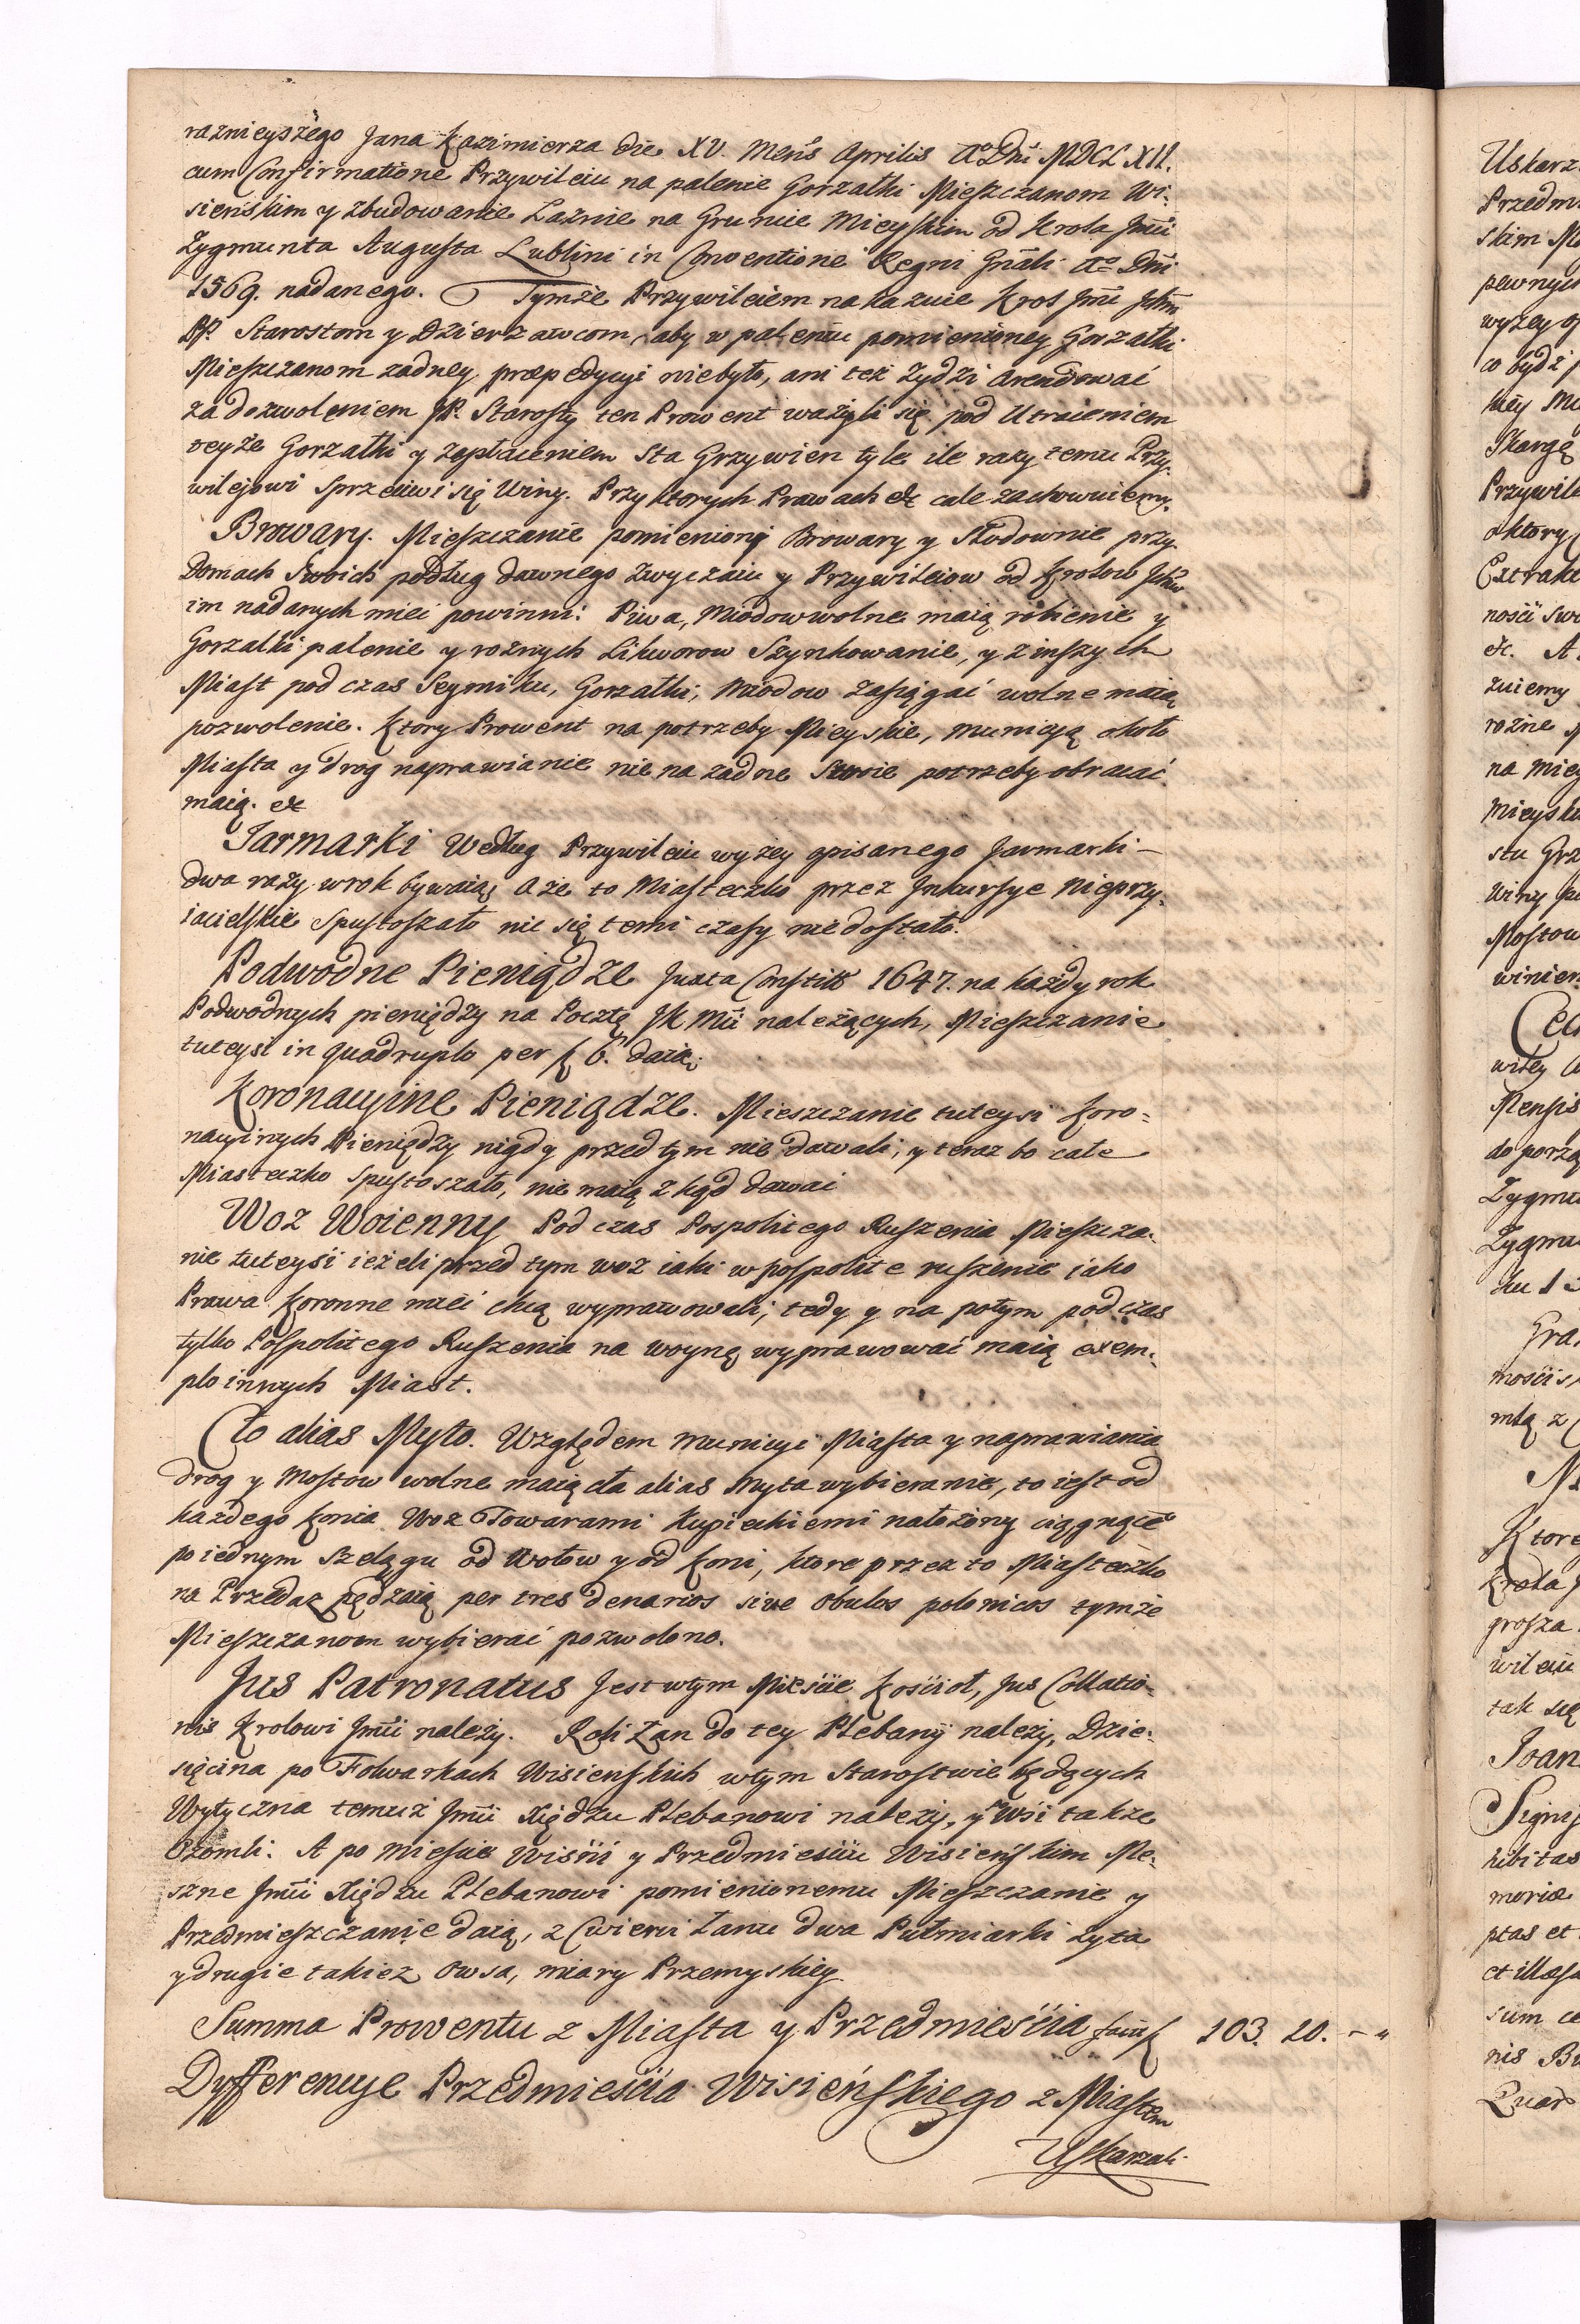 raznieyszego Jana Kazimierza die XV. Mens Aprilis Ao Dni MDCLXII.
cum Confirmatione Przywileiu na palenie Gorzałki Mieszczanom Wi-
sieńskim y zbudowanie Łaźnie na Gruncie Mieyskim od Krola Jmci
Zygmunta Augusta Lublini in Conventione Regni Gnāli Ao Dni
1569. nadanego. Tymże Przywileiem nakazuie Krol Jmć
PP. Starostom y Dzierzawcom, aby w paleniu pomienioney Gorzałki
Mieszczanom zadney præpedycyi niebyło, ani też Zydzi arendować
za dozwoleniem JP. Starosty ten Prowent ważyli się pod Utraceniem
teyże Gorzałki y zapłaceniem sta Grzywien tyle ile razy temu Przy-
wilejowi sprzeciwi się Winy. Przy ktorych Prawach &c cale zachowuiemy.
Browary. Mieszczanie pomienioni Browary y Słodownie przy
Domach Swoich podług dawnego zwyczaiu y Przywileiow od Krolow
im nadanych mieć powinni: Piwa, Miodow wolne maią robienie y
Gorzałki palenie y rożnych Likworow Szynkowanie, y z inszych
Miast pod czas Seymiku, Gorzałki, Miodow zasięgać wolne maią
pozwolenie. Ktory Prowent na potrzeby Mieyskie, municyą około
Miasta y drog naprawianie nie na zadne Swoie potrzeby obracać
maią. &c
Jarmarki Według Przywileiu wyżey opisanego Jarmarki
dwa razy w rok bywaią, a że to Miasteczko przez Inkursye Nieprzy-
iacielskie Spustoszało nic się temi czasy nie dostało.
Podwodne Pieniądze Juxta Constit 1647. na każdy rok
Podwodnych pieniędzy na Pocztę JK Mci należących, Mieszczanie
tuteysi in quadruplo per f 6. daią.
Koronacyine Pieniądze. Mieszczanie tuteysi Koro-
nacyinych Pieniędzy nigdy przedtym nie dawali, y teraz bo całe
Miasteczko spustoszało, nie maią zkąd dawać
Woz Woienny Pod czas Pospolitego Ruszenia Mieszcza-
nie tuteysi ieżeli przed tym woz iaki w pospolite ruszenie iako
Prawa Koronne mieć chcą wyprawowali, tedy y na potym pod czas
tylko Pospolitego Ruszenia na woynę wyprawować maią exem-
plo innych Miast.
Cło alias Myto. Względem municyi Miasta y naprawiania
drog y Mostow wolne maią cła alias Myta wybieranie, to iest od
każdego Konia Woz Towarami Kupieckiemi nałożony ciągnące
po iednym szelągu od Wołow y od Koni, ktore przez to Miasteczko
na Przedaż pędzaią per tres denarios sive obulos polonicos tymże
Mieszczanom wybierać pozwolono.
Jus Patronatus Jest wtym Mieście Kościoł, Jus Collatio-
nis Krolowi Jmci należy. Roli Łan do tey Plebanÿ należy, Dzie-
sięcina po Folwarkach Wisieńskich wtym Starostwie będących
Wytyczna temuż Jmci Xiędzu Plebanowi należy, y Wsi także
Czomli. A po Mieście Wiśni y Przedmieściu Wisieńskim Me-
szne Jmci Xiędzu Plebanowi pomienionemu Mieszczanie y
Przedmieszczanie daią, z Cwierci Łanu dwa Pułmiarki żyta
y drugie takież Owsa, miary Przemyskiey.
Summa Prowentu z Miasta y Przedmieścia facit f 103. 20. - "
Dyfferencye Przedmieścia Wisieńskiego z Miastem
Uskarzali

Uskarz
Przedm
skim
pewnych
wyzey
co bydź
Skargę
Przywile
oktory
Extrakt
ności swo
&c. A
żuiemy
rożne
na Miey
Mieysk
stu Grz
Winy
Mostow
winien
Cech
wiley
Mensis
do porzą
Zygmu
Zygmu
ku 1
Gra
mości
mtą z
Ktore
Krola
grosza
wileiu
tak się
Joan
Signif
hibitas
moriæ
ptas et
et illæsa
sum ce
nis
Quar